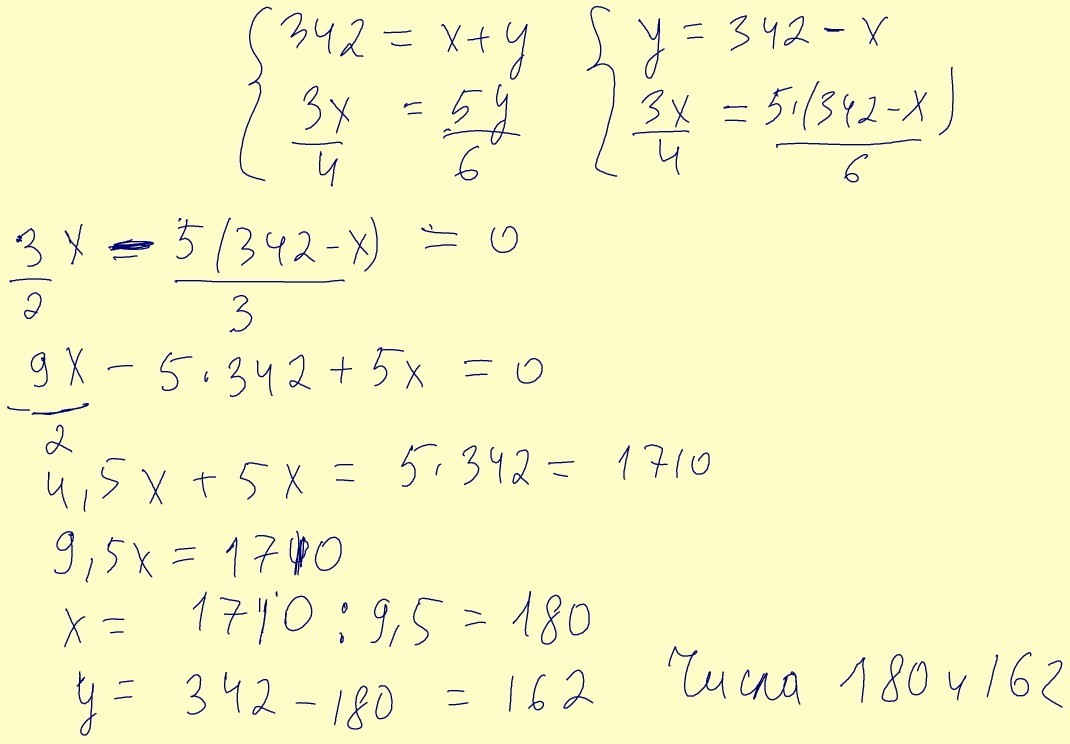 342 = x + y y = 342 - x
3x/4 = 5y/6 3x/4 = 5·(342-x)/6
3/2 x - 5(342-x)/3 = 0
9x/2 - 5·342 + 5x = 0
4,5x + 5x = 5·342 = 1710
9,5x = 1710
x = 1710 : 9,5 = 180
y = 342 - 180 = 162 Числа 180 и 162